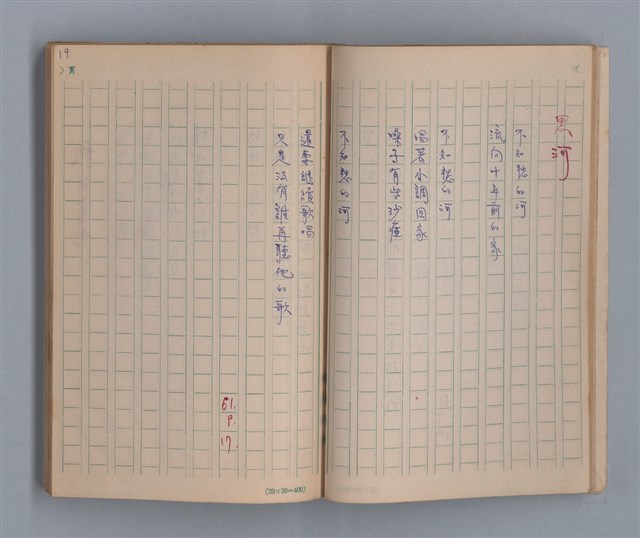 黑河
不知愁的河
流向十年前的家
不知愁的河
唱著小調回家
嗓子有些沙瘂
不知愁的河
還要繼續歌唱
只是沒有誰再聽他的歌
61.
9.
17.
19
)頁
(20×20=400)